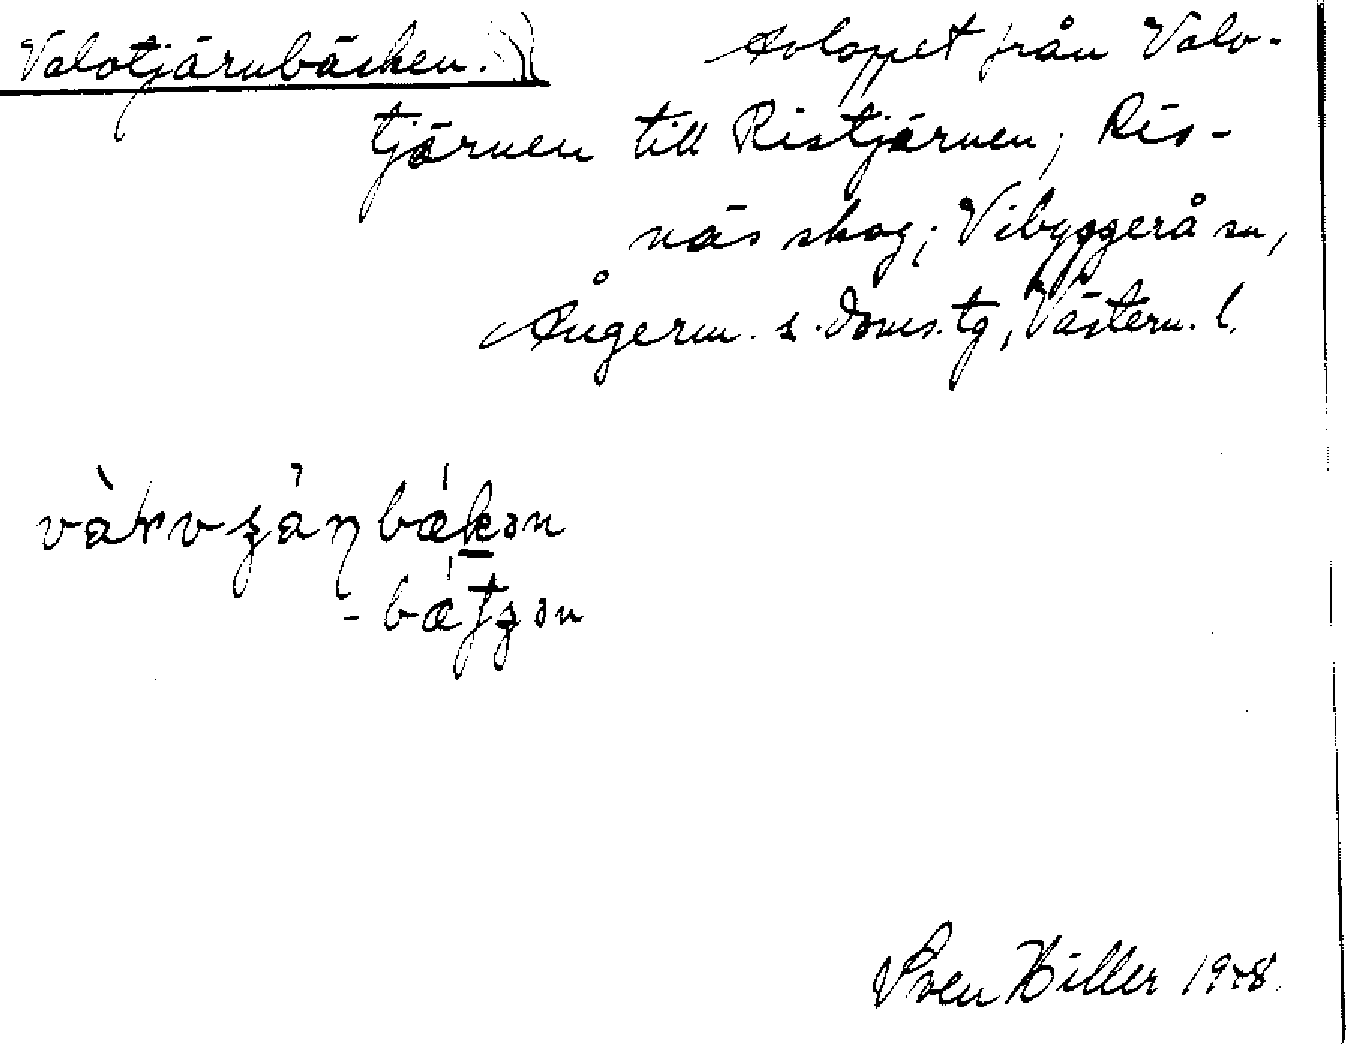 Valotjärnbäcken. Avloppet från Valo-
tjärnen till Ristjärnen; Ris-
näs skog; Vibyggerå sn,
Ångerm. s. doms.tg, Västern. l.
-bæ
Sven Hiller 1948.